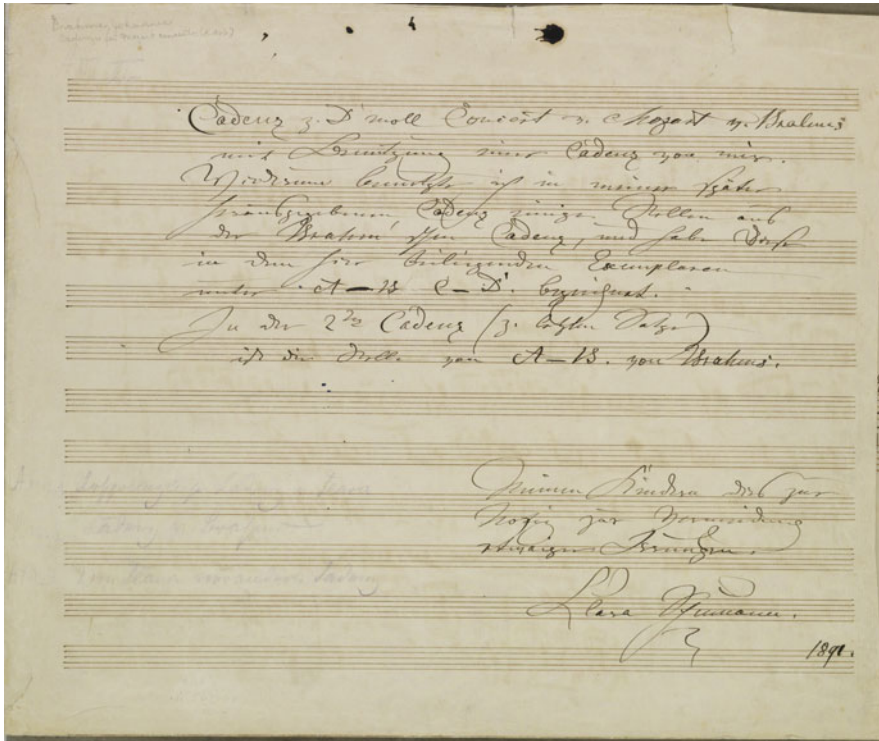 Cadenz z. D moll Concert v. Mozart v. Brahms
mit Benutzung einer Cadenz von mir.
Wiederum benutzte ich in meiner später
herausgegebenen Cadenz einige Stellen aus
der Brahms'schen Cadenz, und habe diese
in dem hier beiliegenden Exemplaren
unter A–B C–D. bezeichnet.
In der 2ten Cadenz (z. letzten Satze)
ist die Stelle von A–B. von Brahms.
Meinen Kindern dies zur
Notiz zur Vermeidung
etwaiger Irrungen.
Clara Schumann.
1891.